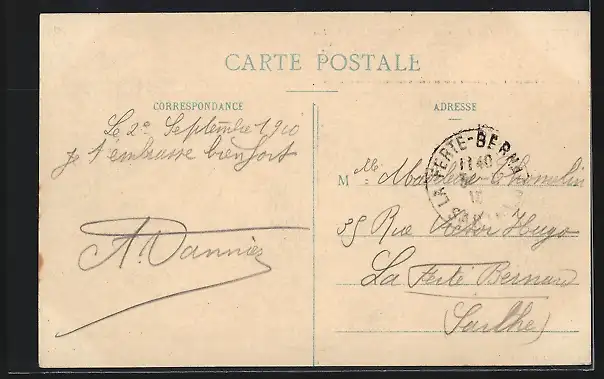 CARTE POSTALE
CORRESPONDANCE
Le 2 Septembre 1910
je t'embrasse bien fort
A. Vannier
ADRESSE
M lle
35 Rue Victor Hugo
La Ferté Bernard
(Sarthe)
LA FERTE-BERNARD
11 40